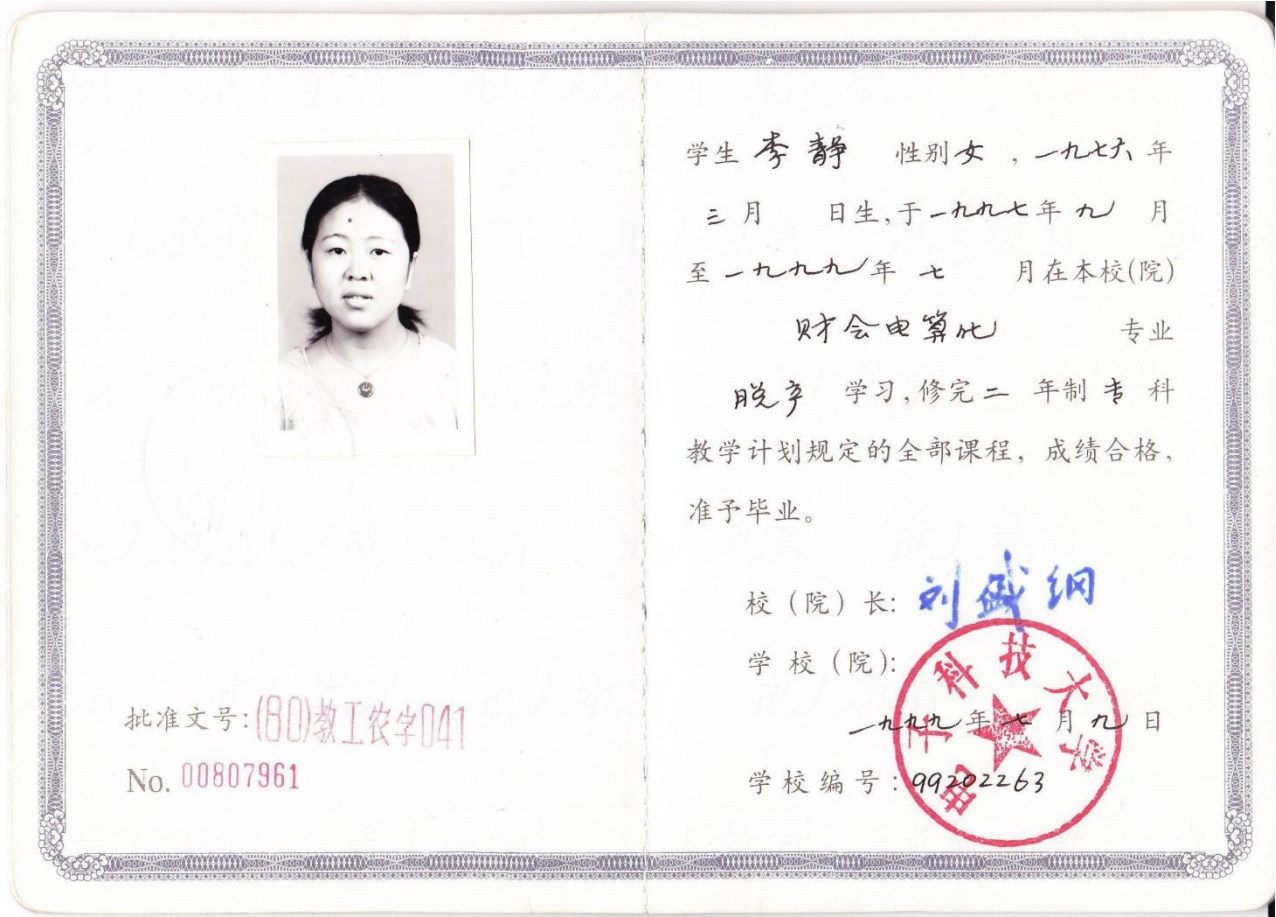 批准文号:(80)教工农字041
No. 00807961
学生 李静 性别 女 , 一九七六 年
三 月 日生,于 一九九七 年 九 月
至 一九九九 年 七 月在本校(院)
财会电算化 专业
脱产 学习,修完 二 年制 专 科
教学计划规定的全部课程, 成绩合格,
准予毕业。
校（院）长: 刘盛纲
学 校（院）:
电子科技大学
一九九九 年 七 月 九 日
学 校 编 号: 99202263